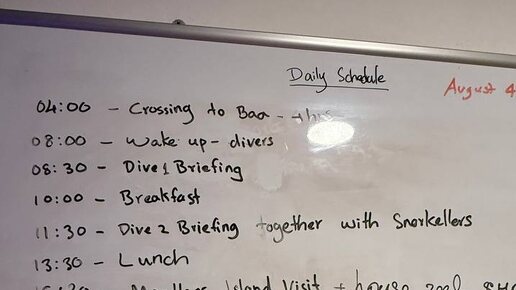 Daily Schedule
August 4
04:00 - Crossing to Baa - hrs
08:00 - Wake up - divers
08:30 - Dive 1 Briefing
10:00 - Breakfast
11:30 - Dive 2 Briefing together with Snorkellers
13:30 - Lunch
Island Visit + house reef